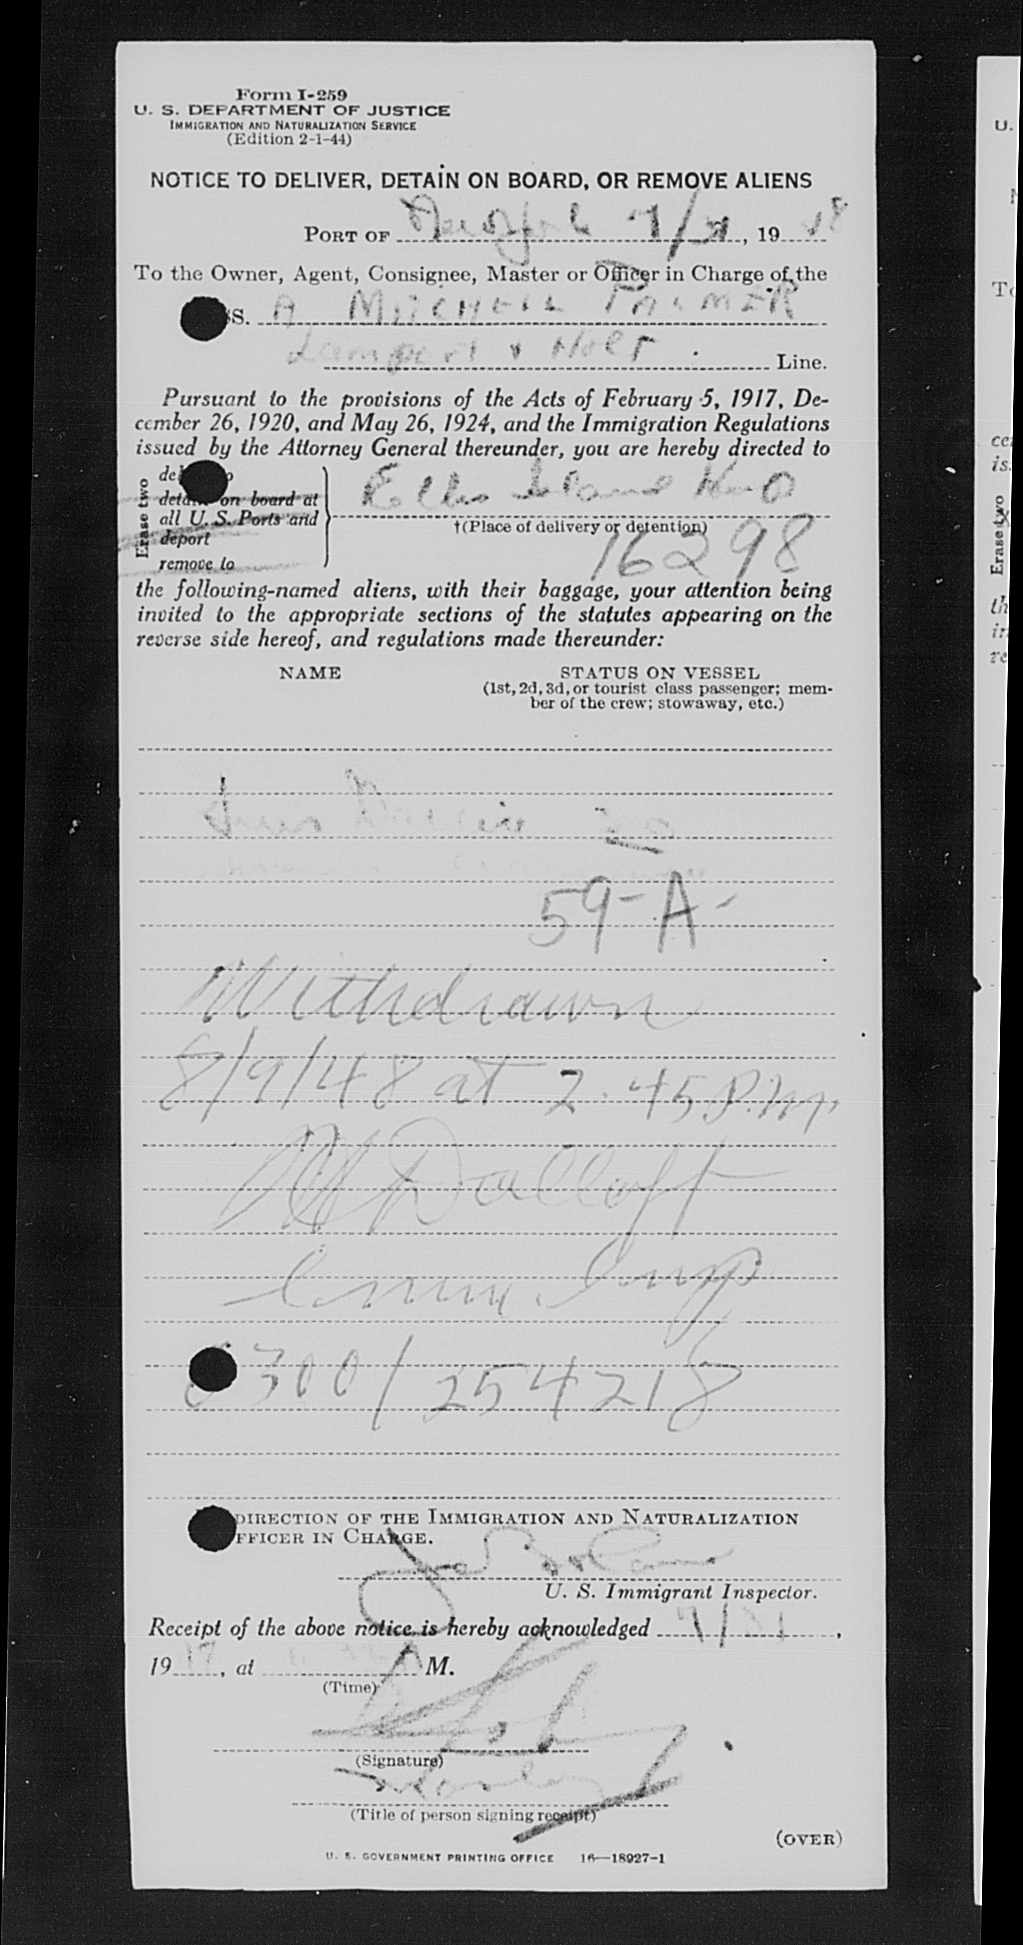 Form I-259
U. S. DEPARTMENT OF JUSTICE
IMMIGRATION AND NATURALIZATION SERVICE
(Edition 2-1-44)
NOTICE TO DELIVER, DETAIN ON BOARD, OR REMOVE ALIENS
PORT OF New York 7/31, 19 48
To the Owner, Agent, Consignee, Master or Officer in Charge of the
SS. A MITCHELL PALMER
Lamport & Holt Line.
Pursuant to the provisions of the Acts of February 5, 1917, De-
cember 26, 1920, and May 26, 1924, and the Immigration Regulations
issued by the Attorney General thereunder, you are hereby directed to
Erase two
detain on board at
all U. S. Ports and
deport
remove to
Ellis Island
†(Place of delivery or detention)
16298
the following-named aliens, with their baggage, your attention being
invited to the appropriate sections of the statutes appearing on the
reverse side hereof, and regulations made thereunder:
NAME STATUS ON VESSEL
(1st, 2d, 3d, or tourist class passenger; mem-
ber of the crew; stowaway, etc.)
59-A-
Withdrawn
8/9/48 at 2.45 P.M.
Imm. Insp
300/254218
DIRECTION OF THE IMMIGRATION AND NATURALIZATION
OFFICER IN CHARGE.
U. S. Immigrant Inspector.
Receipt of the above notice is hereby acknowledged 7/31,
19, at A M.
(Time)
(Signature)
(Title of person signing receipt)
(OVER)
U. S. GOVERNMENT PRINTING OFFICE 16—18927-1